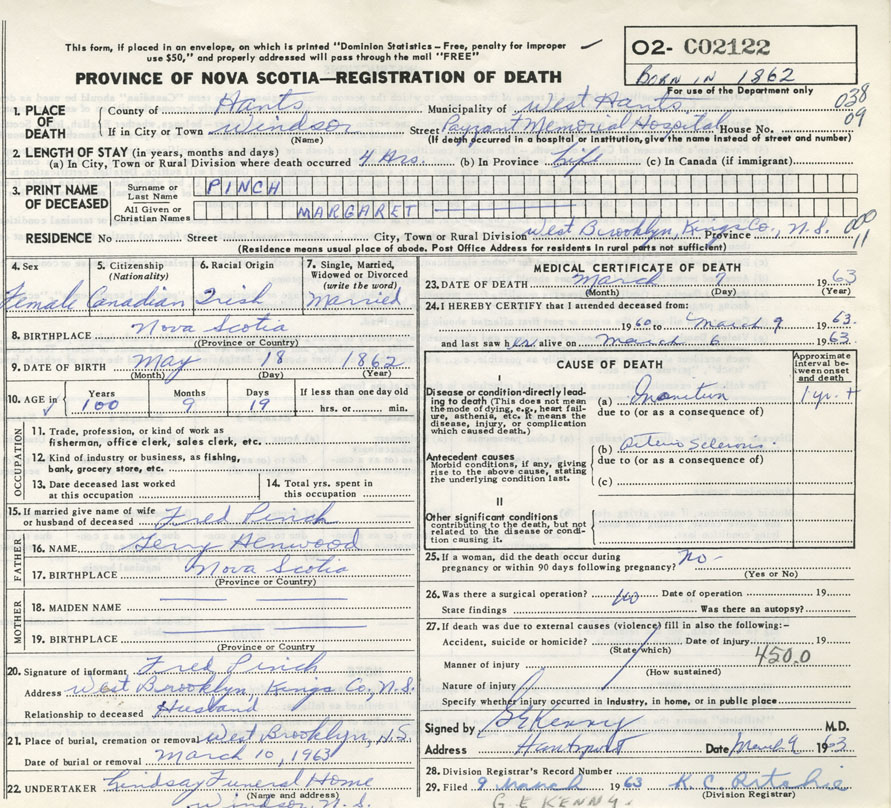 This form, if placed in an envelope, on which is printed "Dominion Statistics – Free, penalty for improper
use $50," and properly addressed will pass through the mail "FREE"
O2- CO2122
BORN IN 1862
For use of the Department only
PROVINCE OF NOVA SCOTIA—REGISTRATION OF DEATH
038
09
1. PLACE OF DEATH
County of Hants Municipality of West Hants
If in City or Town Windsor Street Payzant Memorial Hospital House No.
(Name) (If death occurred in a hospital or institution, give the name instead of street and number)
2. LENGTH OF STAY (in years, months and days)
(a) In City, Town or Rural Division where death occurred 4 Hrs. (b) In Province Life (c) In Canada (if immigrant)
3. PRINT NAME OF DECEASED
Surname or Last Name PINCH
All Given or Christian Names MARGARET
RESIDENCE No. Street City, Town or Rural Division West Brooklyn, Kings Co., N.S. Province 000
11
(Residence means usual place of abode. Post Office Address for residents in rural parts not sufficient)
4. Sex
Female
5. Citizenship (Nationality)
Canadian
6. Racial Origin
Irish
7. Single, Married, Widowed or Divorced (write the word)
Married
8. BIRTHPLACE Nova Scotia
(Province or Country)
9. DATE OF BIRTH May 18 1862
(Month) (Day) (Year)
10. AGE in Years 100 Months 9 Days 19 If less than one day old
hrs. or min.
OCCUPATION
11. Trade, profession, or kind of work as
fisherman, office clerk, sales clerk, etc.
12. Kind of industry or business, as fishing,
bank, grocery store, etc.
13. Date deceased last worked
at this occupation
14. Total yrs. spent in
this occupation
15. If married give name of wife
or husband of deceased Fred Pinch
FATHER
16. NAME Henwood
17. BIRTHPLACE Nova Scotia
(Province or Country)
MOTHER
18. MAIDEN NAME
19. BIRTHPLACE
(Province or Country
20. Signature of informant Fred Pinch
Address West Brooklyn, Kings Co., N.S.
Relationship to deceased Husband
21. Place of burial, cremation or removal West Brooklyn, N.S.
Date of burial or removal March 10, 1963
22. UNDERTAKER Lindsay Funeral Home
(Name and address)
Windsor, N.S.
MEDICAL CERTIFICATE OF DEATH
23. DATE OF DEATH March 9 1963
(Month) (Day) (Year)
24. I HEREBY CERTIFY that I attended deceased from:
1960 to March 9 1963.
and last saw her alive on March 6 1963.
CAUSE OF DEATH
Approximate
interval be-
tween onset
and death
I
Disease or condition directly lead-
ing to death (This does not mean
the mode of dying, e.g., heart fail-
ure, asthenia, etc. It means the
disease, injury, or complication
which caused death.)
(a) Inanition 1 yr. +
due to (or as a consequence of)
Antecedent causes
Morbid conditions, if any, giving
rise to the above cause, stating
the underlying condition last.
(b) Arterio Sclerosis
due to (or as a consequence of)
(c)
II
Other significant conditions
contributing to the death, but not
related to the disease or condi-
tion causing it.
25. If a woman, did the death occur during
pregnancy or within 90 days following pregnancy? No-
(Yes or No)
26. Was there a surgical operation? No Date of operation 19
State findings Was there an autopsy?
27. If death was due to external causes (violence) fill in also the following:–
Accident, suicide or homicide? Date of injury 19
(State which) 450.0
Manner of injury
(How sustained)
Nature of injury
Specify whether injury occurred in Industry, in home, or in public place
Signed by G E Kenny M.D.
Address Hantsport Date March 9 1963
28. Division Registrar's Record Number
29. Filed 9 March 1963 R. C. Ritchie
(Division Registrar)
G. E KENNY.